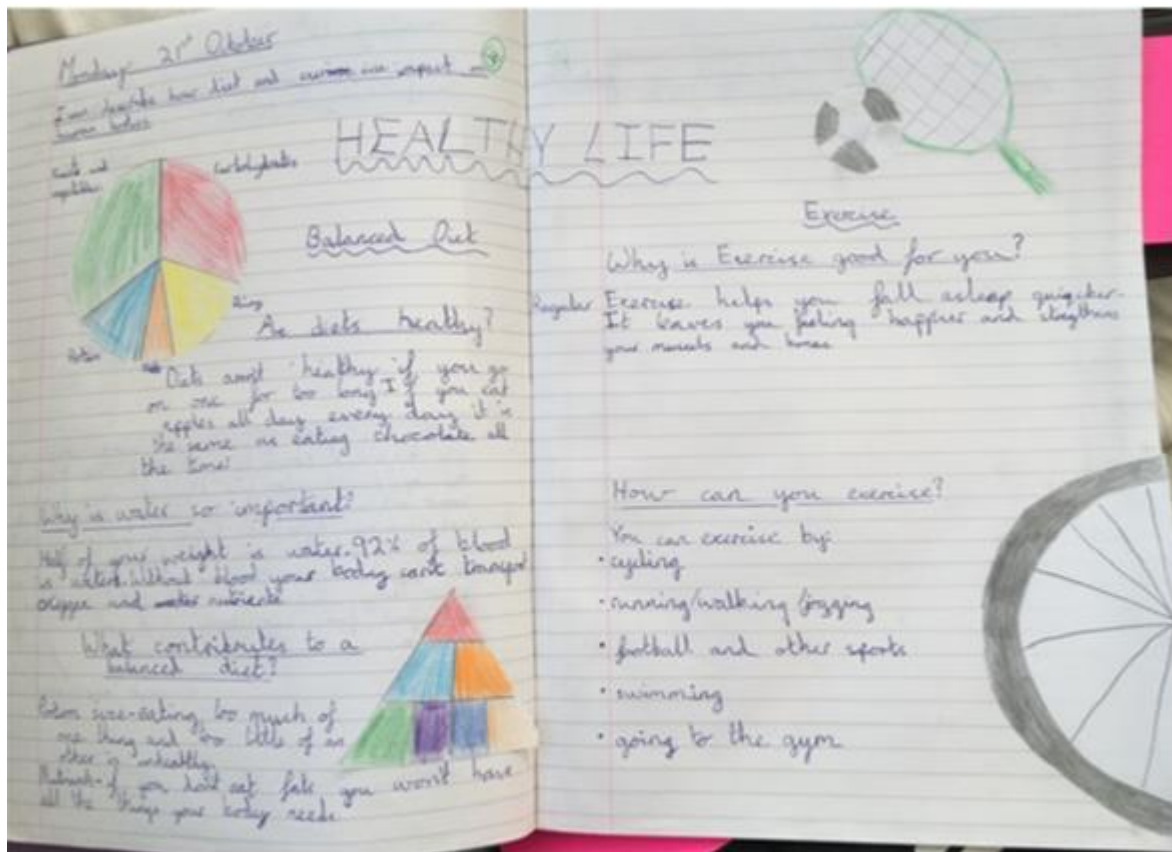 Monday 21st October
I can describe how diet and exercise impact on
human bodies
HEALTHY LIFE
Fruits and
vegetables
Carbohydrates
Dairy
Protein
Balanced Diet
Are diets healthy?
Diets arnt healthy if you go
on one for too long If you eat
apples all day every day it is
the same as eating chocolate all
the time.
Why is water so important?
Half of your weight is water. 92% of blood
is water. Without blood your body can't transport
oxygen and nutrients
What contributes to a
balanced diet?
Potion size-eating too much of
one thing and too little of an
other is unhealthy.
if you don't eat fats you won't have
all the things your body needs
Exercise
Why is Exercise good for you?
Regular Exercise helps you fall asleep quicker.
It leaves you feeling happier and
your and bones
How can you exercise?
You can exercise by:
• cycling
• running/walking/jogging
• football and other sports
• swimming
• going to the gym